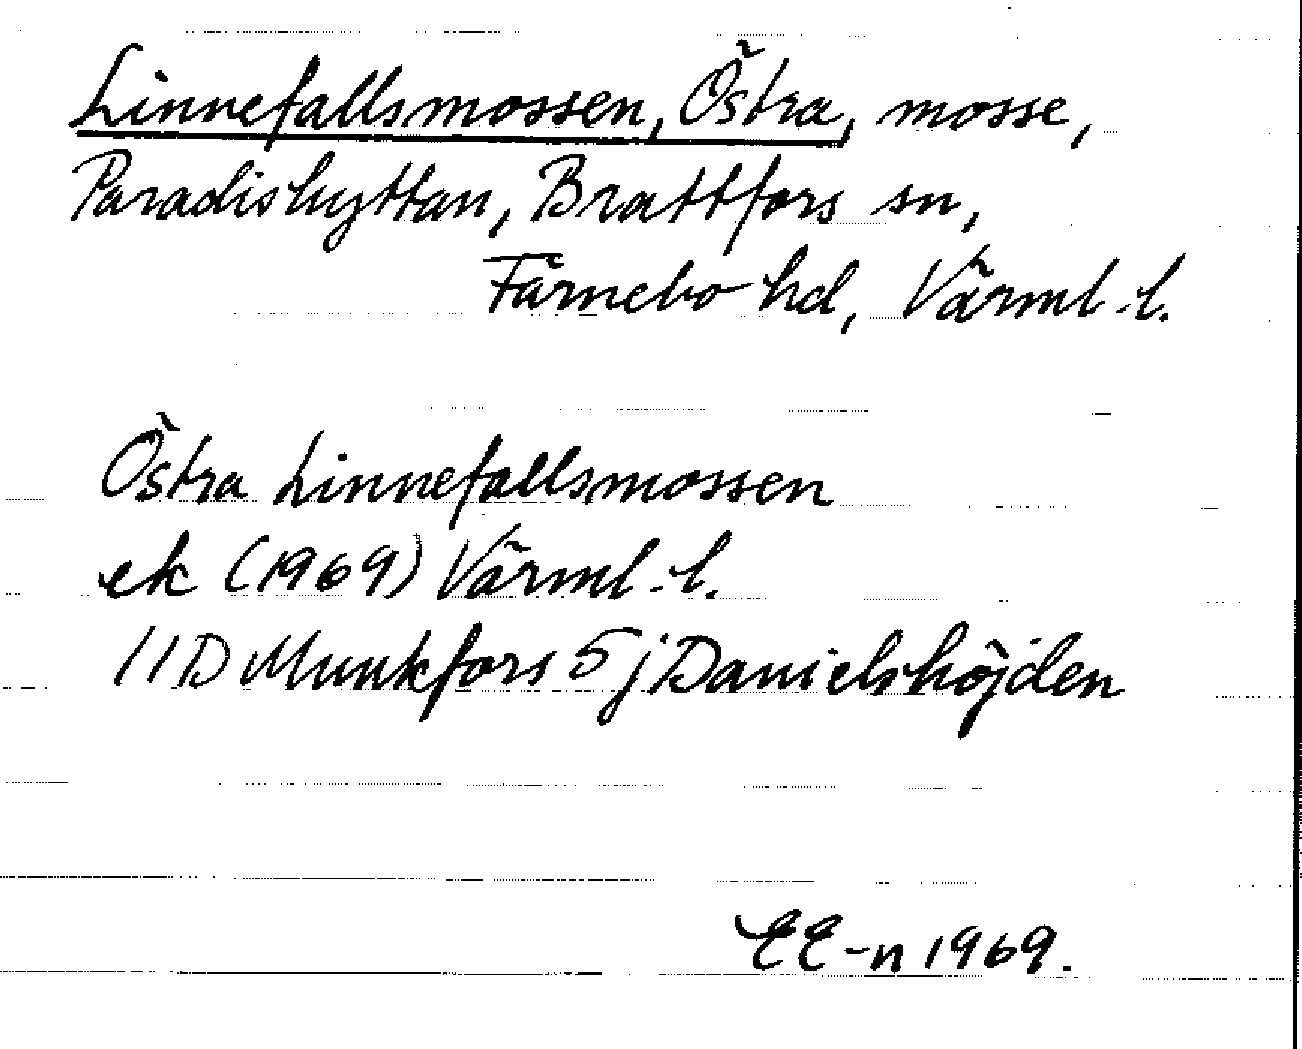 Linnefallsmossen, Östra, mosse,
Paradishyttan, Brattfors sn,
Färnebo hd, Värml. l.
Östra Linnefallsmossen
ek (1969) Värml. l.
11D Munkfors 5j Danielshöjden
EE-n 1969.